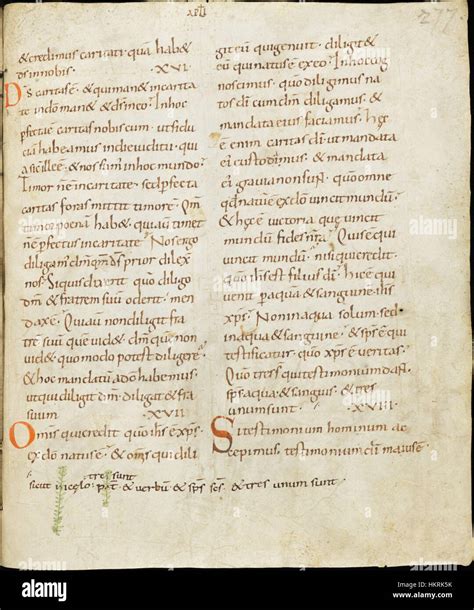 277
& credimus caritati quā hab&
ds in nobis · XVI ·
Ds caritas ē · & qui man& in carita
te in dō man& & ds in eo · In hoc
pfecta ē caritas nobiscum · ut fidu
ciā habeamus in die iudicii · qui
a sicut ille ē · & nos sum' in hoc mundo ·
Timor nē in caritate · sed pfecta
caritas foras mittit timorē · Qm̄
timor poenā hab& · qui autē tim&
nē pfectus in caritate · Nos ergo
diligam' dm̄ · qm̄ ds prior dilex
nos · Siquis dixerit quō diligo
dm̄ · & fratrem suū oderit · men
dax ē · Qui autē non diligit fra
trē suū quē uid& · dm̄ quē non
uid& quomodo potest diligere ·
& hoc mandatū adō habemus ·
ut qui diligit dm̄ · diligat & fra
suum · XVII ·
Omnis qui credit quō ihs ē xps ·
ex dō natus ē · & omis qui dili
git eū qui genuit · diligit &
eū qui natus ē ex eo · In hoc cog
noscimus · quō diligimus na
tos dī · cum dm̄ diligamus · &
mandata eius faciamus · Haec
ē enim caritas dī · ut mandata
eī custodimus · & mandata
eī grauia non sunt · quō omne
qd natū ē ex dō · uincit mundum ·
& hęc ē uictoria que uincit
mundum · fides nr̄a · Quis ē qui
uincit mundū · nisi qui credit ·
quō ihs est filius dī · Hic ē qui
uenit p aquā & sanguinē · ihs
xps · Non in aqua solum · sed
in aqua & sanguine · & sps ē qui
testificatur · quō xps ē ueritas ·
Quō tres s̄ qui testimoniū dant ·
sps · aqua · & sanguis · & tres
unum sunt · XVIII ·
Si testimonium hominum ac
cepimus · testimonium dī maius ē ·
tres sunt
sicut in celo · pat̄ & uerbū & sps scs · & tres unum sunt ·
alamy
Image ID: HKRK5K
www.alamy.com